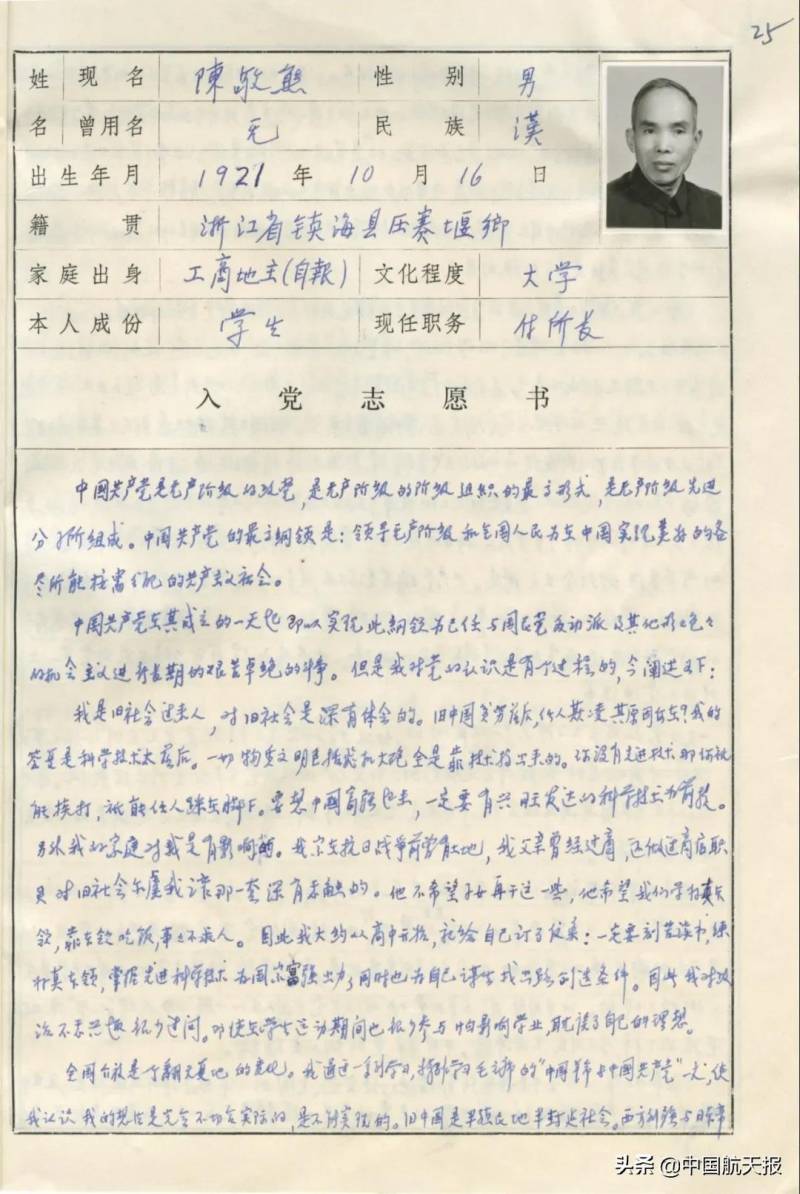 25
姓 现名 陳敬熊 性别 男
名 曾用名 无 民族 漢
出生年月 1921 年 10 月 16 日
籍贯 浙江省镇海县压赛堰鄉
家庭出身 工商地主(自報) 文化程度 大学
本人成份 学生 现任职务 付所长
入党志愿书
中国共产党是无产阶级的政党,是无产阶级的阶级组织的最高形式,是无产阶级先进
分子所组成。中国共产党的最高綱领是:领导无产阶级和全国人民为在中国实现美好的各
尽所能按需分配的共产主义社会。
中国共产党在其成立的一天起即以实现此綱领为己任与国民党反动派及其他形形色色
的机会主义进行長期的艰苦卓绝的斗争。但是我对党的认识是有个过程的,今阐述如下:
我是旧社会过来人,对旧社会是深有体会的。旧中国贫穷落后,任人欺凌其原因何在?我的
答复是科学技术太落后。一切物质文明包括飞机大炮全是靠技术搞出来的。你没有先进技术那你就
能挨打,就能任人踩在脚下。要想中国富强起来,一定要有兴旺发达的科学技术为前提。
另外我的家庭对我是有影响的。我家在抗日战争前劳有土地,我父亲曾经过商,还做过商店职
员对旧社会尔虞我诈那一套深有感触的。他不希望子女再干这一些,他希望我们学好真本
领,靠本领吃饭,事事不求人。因此我大约从高中开始,就给自己订了信条:一定要刻苦读书,练
好真本领,掌握先进科学技术为国家富强出力,同时也为自己谋生找出路创造条件。因此我对政
治不感兴趣很少过问。即使在学生运动期间也很少参与怕影响学业,耽误了自己的理想。
全国解放是个翻天复地的变化。我通过一系列学习,特别学习毛主席的“中国革命与中国共产党”一文,使
我认识我的想法是完全不切合实际的,是不能实现的。旧中国是半殖民地半封建社会。西方列强与日本帝
头条 @中国航天报